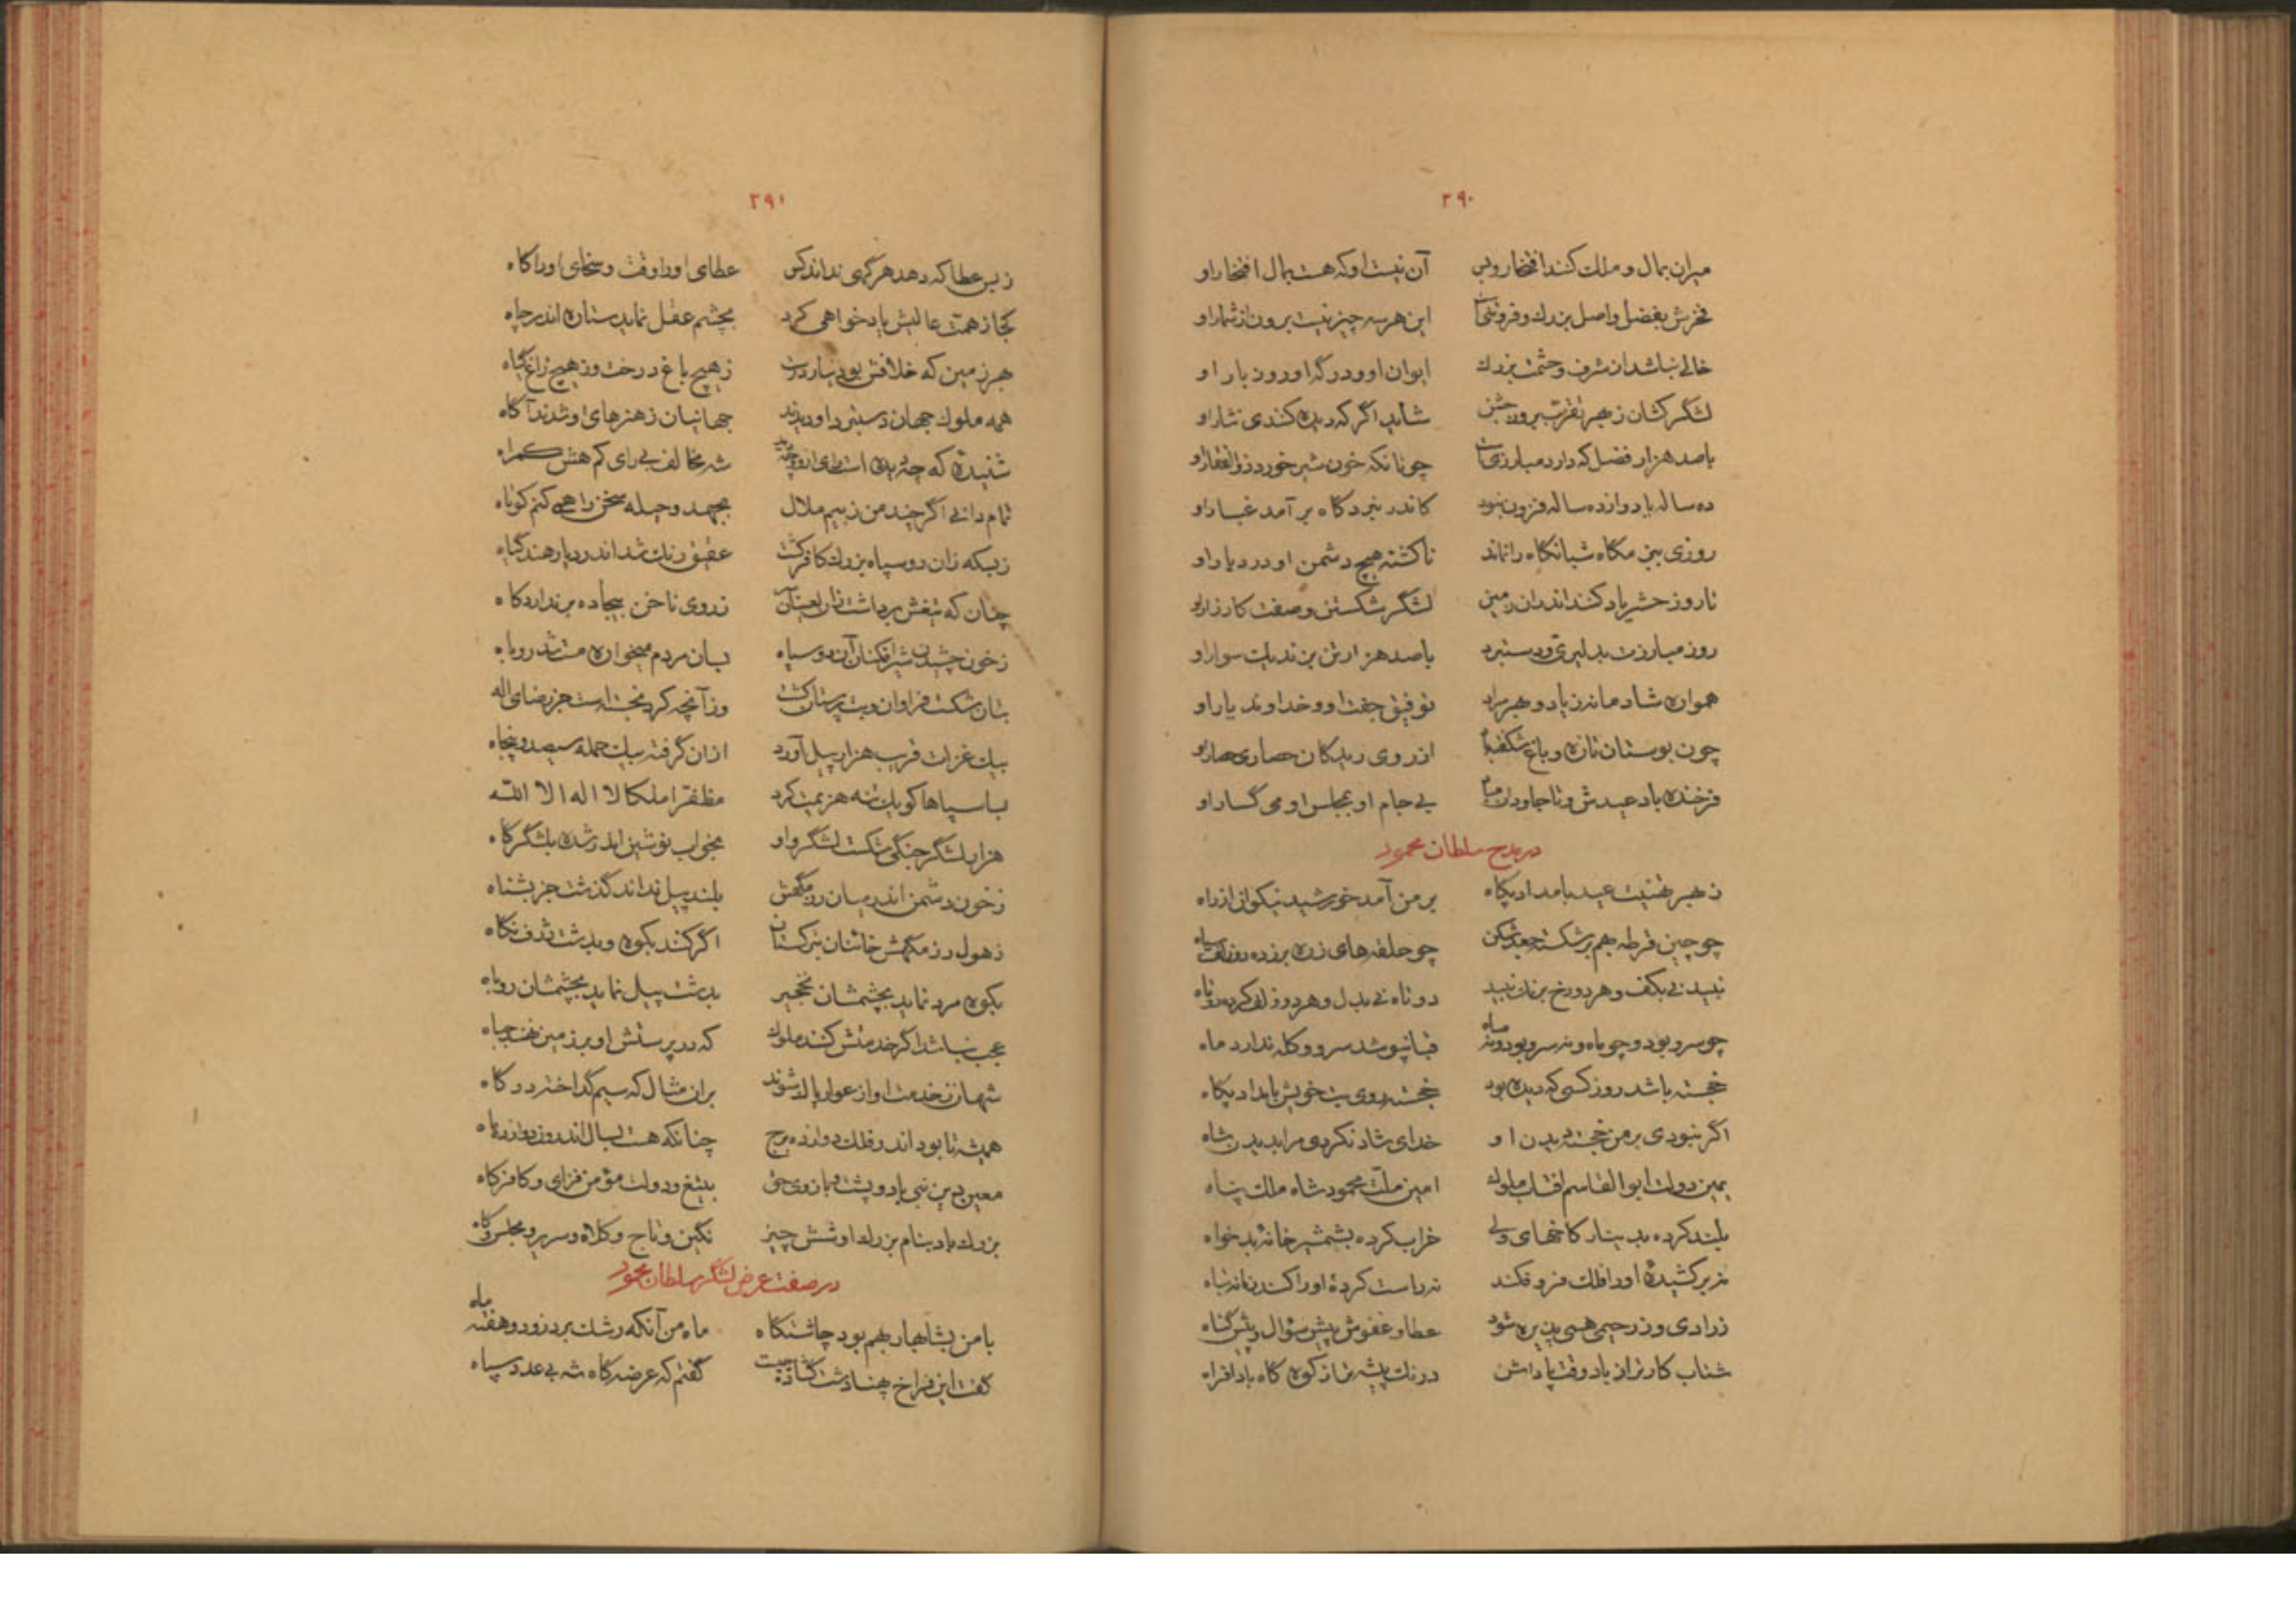 ۲۹۰
میران بمال و ملك كنند افتخار و بس آن نیست او که هست بمال افتخار او
فخرش بفضل و اصل بزرك و فروتنی است این هر سه چیز نیست برون از شمار او
خالی نباشد از شرف و حشمت بزرك ایوان او و درگه او روز بار او
لشگر کشان زهر شاید اگر که دیده کندی نثار او
با صد هزار فضل که دارد مبارزی است چونانکه خون شیر خورد ذوالفقار او
ده ساله با دوازده ساله فزون نبود کاندر نبرد کاه بر آمد غبار او
روزی بنیمکاه شبانکاه را نماند ناکشته هیچ دشمن او در دیار او
تا روز حشر یاد کنند اندران زمین لشگر شکستن و صفت کارزار او
روز مبارزت بدلیری و دستبرد با صد هزار تن بزند یك سوار او
همواره شادمانه زیاد و بهر مراد توفیق جفت او و خداوند یار او
چون بوستان تازه و باغ شکفته باد از روی ریدکان حصاری حصار او
فرخنده باد عیدش و تا جاودان مباد بی جام او بمجلس او می گسار او
در مدح سلطان محمود
ز بهر تهنیت عید بامداد پکاه بر من آمد خورشید نیکوان از راه
چو چین قرطه بهم بر شکسته جعد شکن چو حلقه های زره بر زده دو زلف سیاه
نبید نی بکف و هر دو رخ برنك نبید دوتاه نی بدل و هر دو زلف کرده دوتاه
چو سرو بود و چو ماه و نه سرو بود و نه ماه قبا نپوشد سرو و کله ندارد ماه
خجسته باشد روز کسی که دیده بود خجسته روی بت خویش بامداد پکاه
اگر نبودی بر من خجسته دیدن او خدای شاد نکردی مرا بدیدن شاه
یمین دولت ابوالقاسم افتاب ملوك امین ملت محمود شاه ملك پناه
بلند کرده بدینار کاخهای ولی خراب کرده بشمشیر خانهٔ بدخواه
نه بر کشیدهٔ او را فلك فرو فکند نه راست کردهٔ او را کند زمانه تباه
ز رادی و ز رحیمی همی پذیره شود عطا و عفوش پیش سؤال و پیش گناه
شتاب کارتر از باد وقت پاداش درنك پیشه تر از کوه کاه بادافراه
۲۹۱
ز بس عطا که دهد هر گهی نداند کس عطای او را وقت و سخای او را کاه
کجا ز همت عالیش یاد خواهی کرد بچشم عقل نماید ستاره اندر چاه
بهر زمین که خلافش بود نیارد رست ز هیچ باغ درخت و ز هیچ راغ گیاه
همه ملوك جهان دستبرد او دیدند جهانیان ز هنرهای او شدند آگاه
شنیدهٔ که چه دیده است شه مخالف بی رای کم هش گمراه
تمام دانی اگر چند من ز بیم ملال بجهد و حیله سخن را همی کنم کوتاه
ز بسکه زان دو سپاه بزرك کافر کشت عقیق رنك شد اندر دیار هند گیاه
چنان که تیغش برداشت زان ز روی ناخن بیجاده بر ندارد کاه
ز خون چشیدن شیر افکنان آن دو سپاه بسان مردم میخواره مست شد روباه
بتان شکست فراوان و بت پرستان کشت وز آنچه کرد نجسته است جز رضای اله
بیك غزات قریب هزار پیل آورد ازان گرفته بیك حمله سیصد و پنجاه
بسا سپاها کو یك تنه هزیمت کرد مظفرا ملکا لا اله الا الله
هزار لشگر جنگی شکست لشگر او بخواب نوشین اندر شده بلشگرگاه
ز خون دشمن اندر میان رزمگهش بلند پیل نداند گذشت جز بشناه
ز هول رزمگهش خانشان بترکستان اگر کند بکوه و بدشت ژرف نگاه
بکوه مرد نماید بچشمشان نخجیر بدشت پیل نماید بچشمشان روباه
عجب نباشد اگر خدمتش کنند ملوك که در پرستش او بر زمین نهند جباه
شهان ز خدمت او از عوار پاك شوند بران مثال که سیم گداخته در کاه
همیشه تا بود اندر فلك دوازده برج چنانکه هست بسال اندرون دوازده ماه
معین دین نبی باد و پشت و بازوی حق بتیغ و دولت مؤمن فزای و کافر کاه
بزرك باد بنام بزرك او شش چیز نگین و تاج و کلاه و سریر و مجلس و کاه
در صفت عرض لشگر سلطان محمود
با من بشابهار بهم بود چاشتکاه ماه من آنکه رشك برد زو دو هفته ماه
گفت این فراخ پهنا دشت گشاده چیست گفتم که عرضه گاه شه بی عدد سپاه